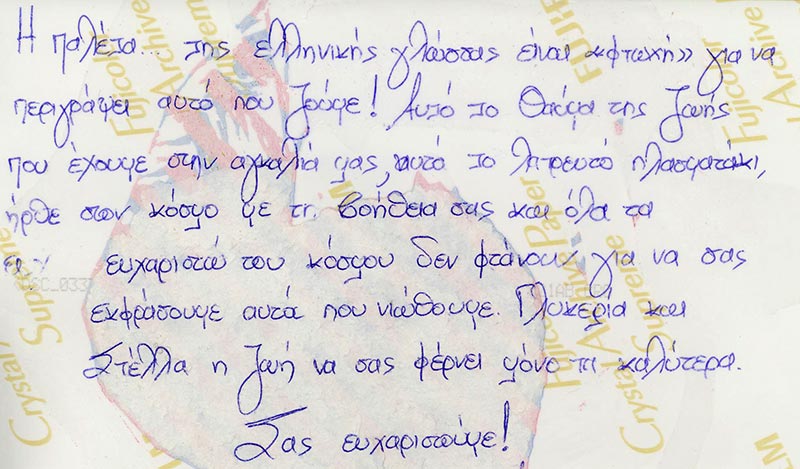 Η παλέτα... της ελληνικής γλώσσας είναι «φτωχή» για να
περιγράψει αυτό που ζούμε! Αυτό το Θαύμα της Ζωής
που έχουμε στην αγκαλιά μας, αυτό το λατρευτό πλασματάκι,
ήρθε στον κόσμο με τη βοήθεια σας και όλα τα
ευχαριστώ του κόσμου δεν φτάνουν για να σας
εκφράσουμε αυτά που νιώθουμε. Γλυκερία και
Στέλλα η Ζωή να σας φέρνει μόνο τα καλύτερα.
Σας ευχαριστούμε!
Crystal Supreme
Fujicolor
Archive Paper
Supreme